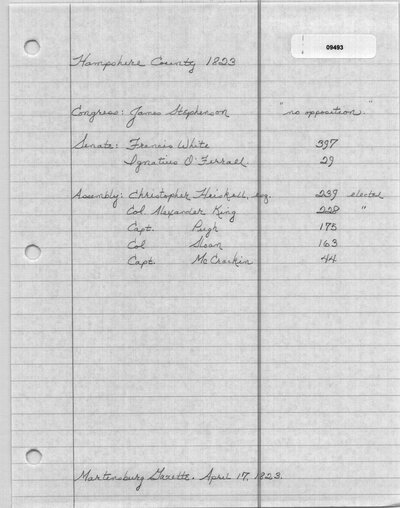 09493
Hampshire County 1823
Congress: James Stephenson "no opposition."
Senate: Francis White 397
Ignatius O'Ferrall 29
Assembly: Christopher Heiskell, esq. 239 elected
Col Alexander King 228 "
Capt. Pugh 175
Col Sloan 163
Capt. McCrackin 44
Martinsburg Gazette. April 17, 1823.